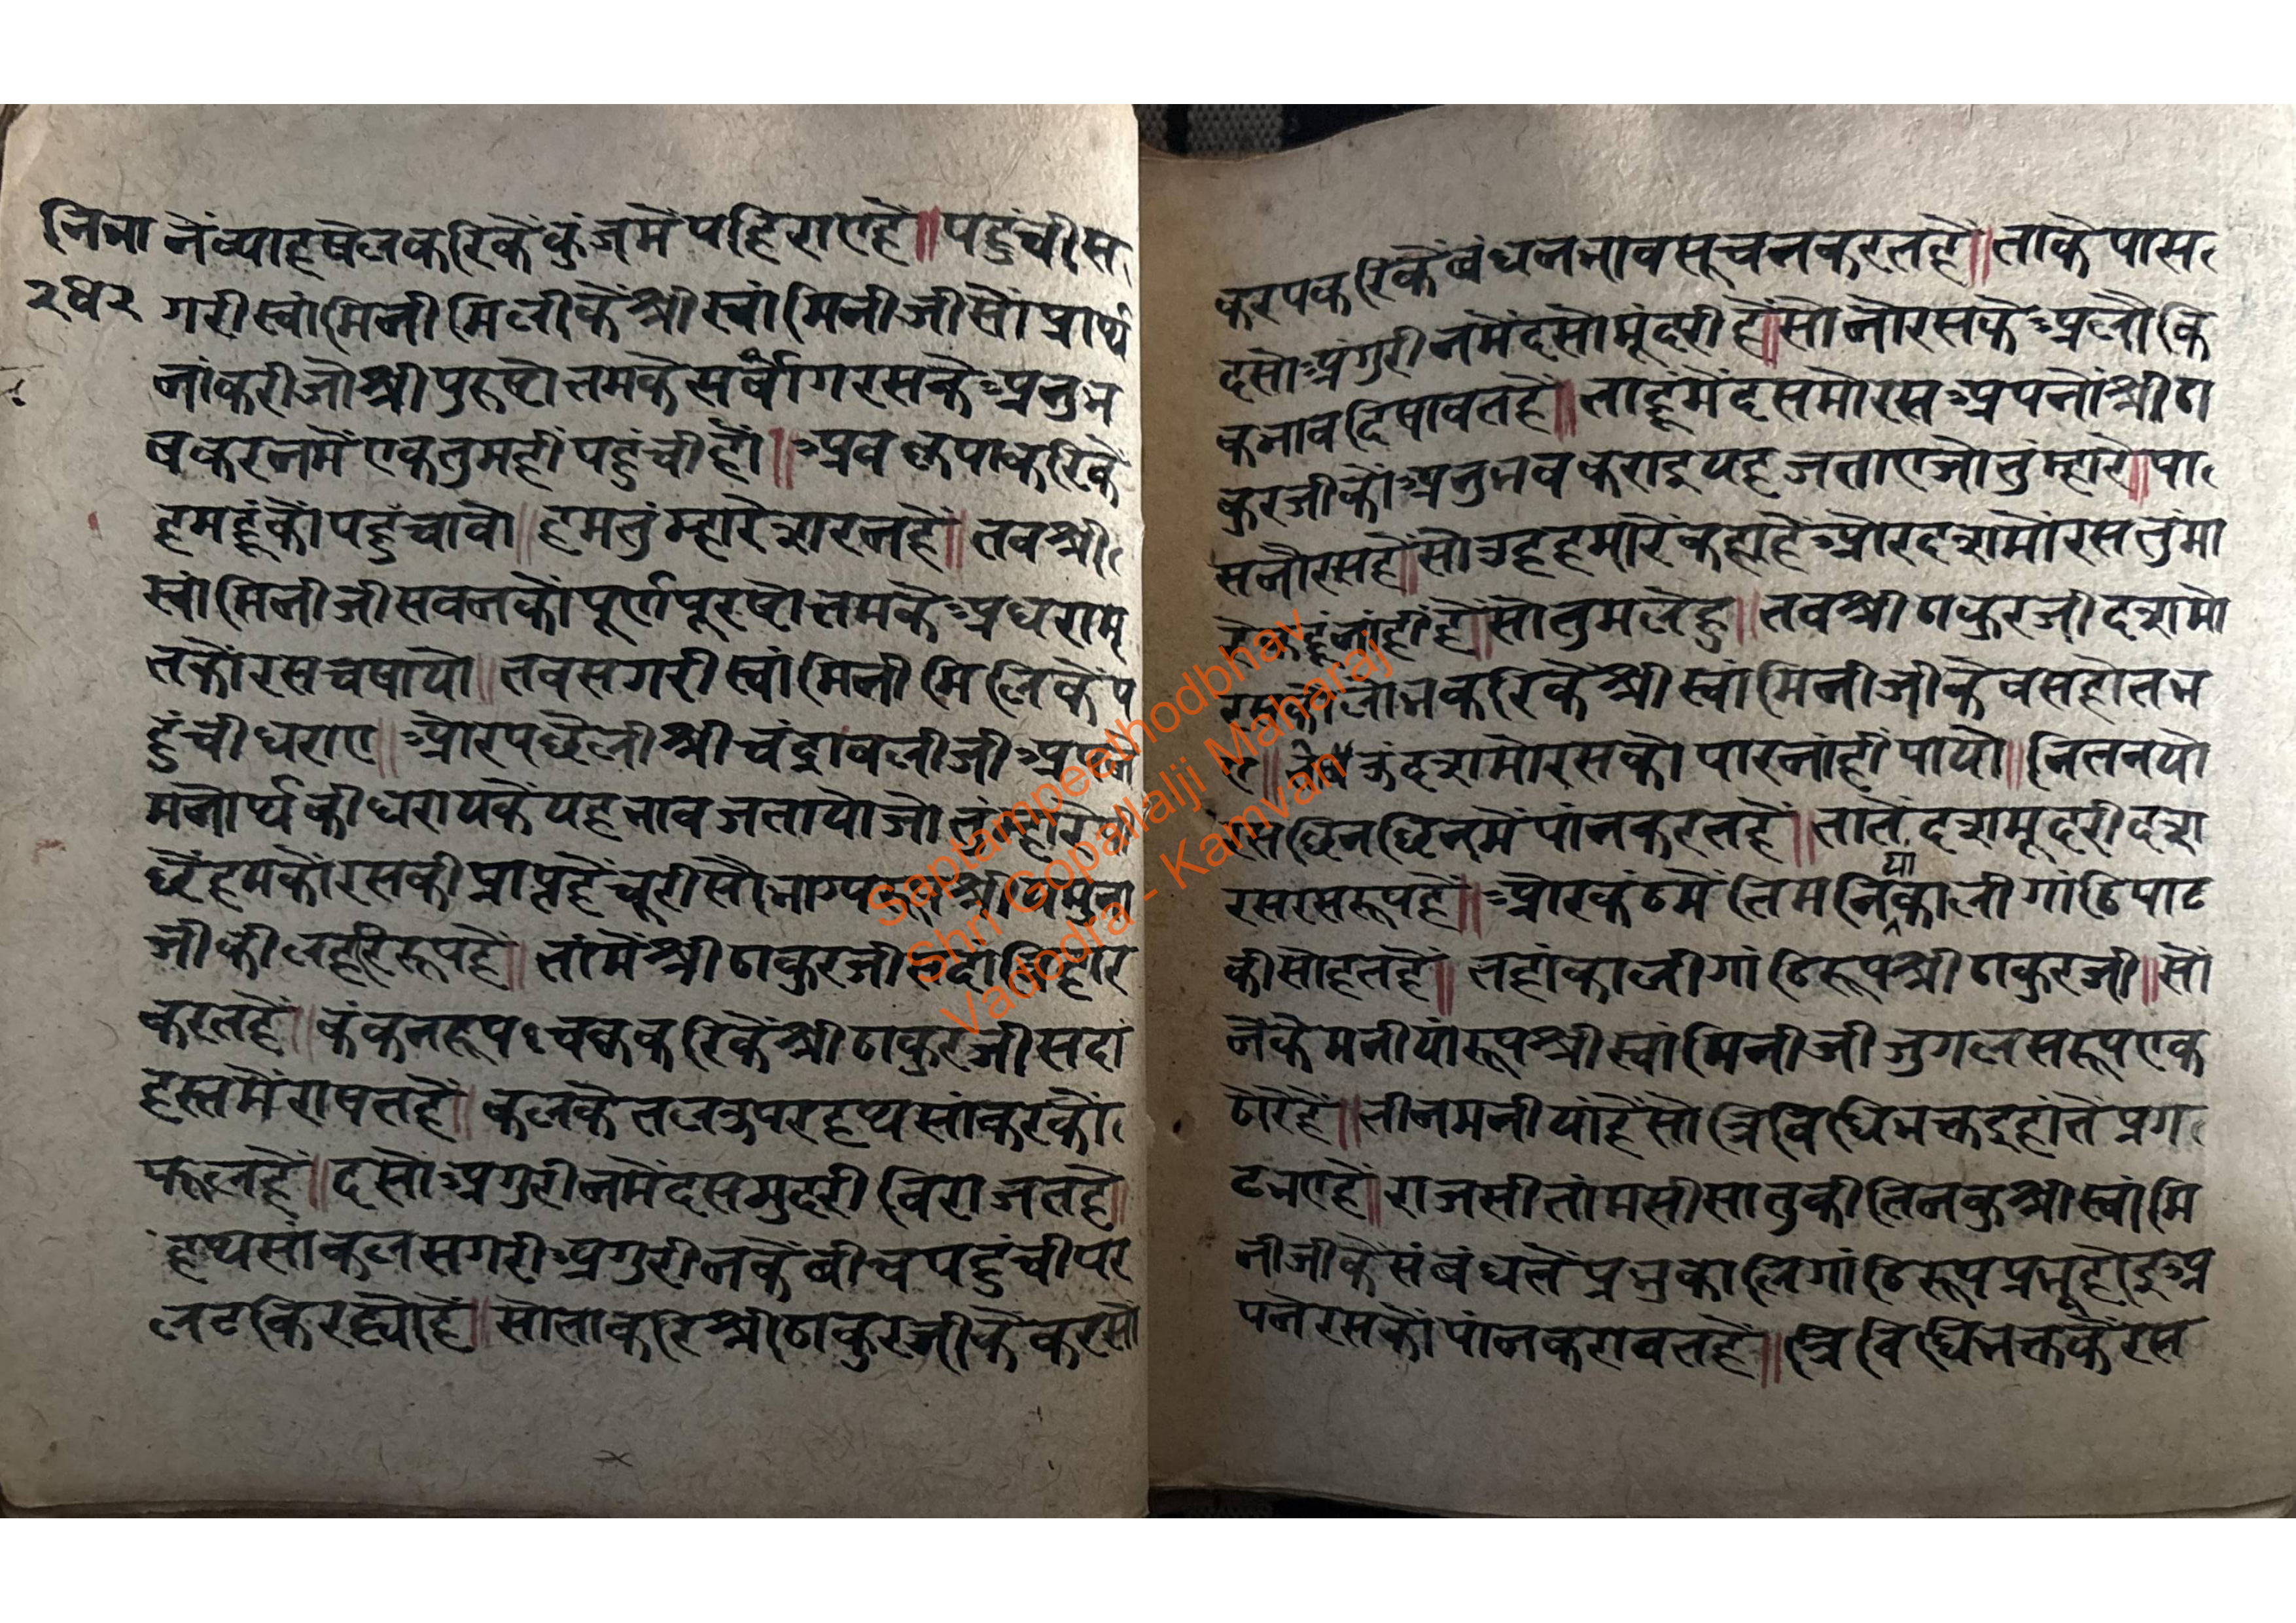 नि॰भा
२४२
नें व्याह षेल करिकें कुंज में पहिराए हें ॥ पहुंची स
गरी स्वांमिनी मिली कें श्री स्वांमिनी जी सों प्रार्थ
नां करी जो श्री पुरुषोत्तम के सर्वांग रस के अनुभ
व करन में एक तुमहीं पहुंची हों ॥ अब कृपा करिकें
हमहूं कों पहुंचावो ॥ हम तुंम्हारे शरन हें ॥ तब श्री
स्वांमिनी जी सबन कों पूर्ण पूरषोत्तम के अधरामृ
त कों रस चषायो ॥ तब सगरी स्वांमिनी मिलि कें प
हुंची धराए ॥ और पछेली श्री चंद्रावली जी
मनोर्थ की धराय कें यह भाव जतायो जो
छें हम कों रस की प्राप्त हें चूरी सौभाग्य
जी की लहरि रूप हें ॥ तां में श्री ठाकुर जी सदां
करत हें ॥ कंकन रूप चक्र करिकें श्री ठाकुर जी सदां
हस्त में राषत हें ॥ कमल के तलऊपर हथ सांकर कों
फूल हें ॥ दसो अगुरीन में दस मुदरी विराजत हे ॥
हथ सांकल सगरी अगुरीन कें बीच पहुंची पर
लटकि रह्यो हें ॥ सो ताकरि श्री ठाकुर जी कें कर सों
कर पकरिकें बंधन भाव सूचन करत हें ॥ ता के पास
दसो अंगुरीन में दसो मूंदरी हें ॥ सो नो रस के अलौकि
क भाव दिषावत हें ॥ ताहूं में दसमो रस अपनों श्री ठा
कुर जी कों अनुभव कराइ यह जताए जो तुंम्हारे ॥ पा
स नो रस हें ॥ सो उह हमारें कहा हें और दशमों रस तुंमा
रे कहूं नांहीं हें ॥ सो तुम लेहु ॥ तब श्री ठाकुर जी दशमो
रस को लोभ करिकें श्री स्वांमिनी जी के बस होत भ
ए ॥ दशमो रस को पार नांहीं पायो ॥ नितनयो
रस छिन छिन में पांन करत हें ॥ तातें दश मूदरी दश
रस रस रूप हें ॥ और कंठ में तिमनियां काली गांठि पाट
की सोहत हें ॥ तहां काली गांठि रूप श्री ठाकुर जी ॥ सों
नें के मनीयां रूप श्री स्वांमिनी जी जुगल सरूप एक
ठोरे हें ॥ तीन मनीयां हें सो त्रिविधि भक्त इहां तें प्रग
ट भए हें ॥ राजसी तांमसी सातुकी तिनकु श्री स्वांमि
नी जी कें संबंध तें प्रभु कालि गांठि रूप प्रभू होइ अ
पने रस कों पांन करावत हें ॥ त्रिविधि भक्त कें रस
Saptampeethodbhav
Shri Gopallalji Maharaj
Vadodra - Kamvan